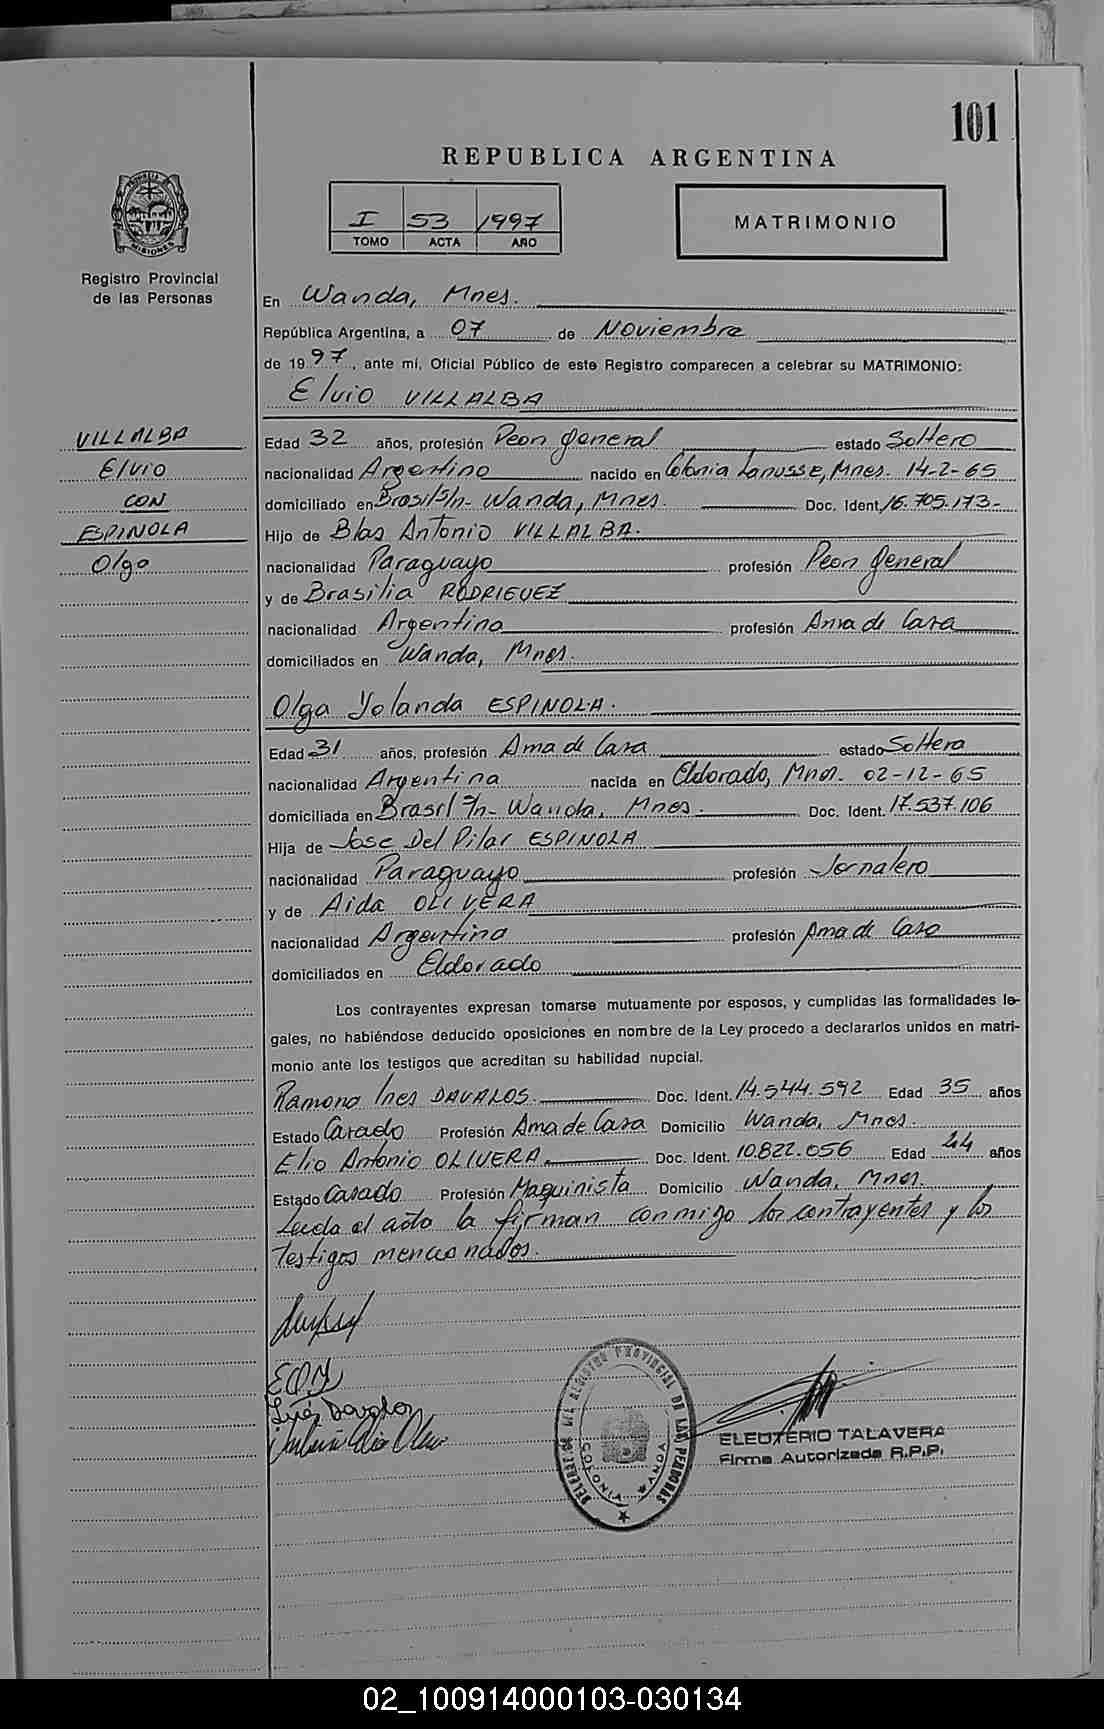 101
REPUBLICA ARGENTINA
I 53 1997
TOMO ACTA AÑO
MATRIMONIO
PROVINCIA DE MISIONES
Registro Provincial
de las Personas
En Wanda, Mnes.
República Argentina, a 07 de Noviembre
de 1997, ante mí, Oficial Público de este Registro comparecen a celebrar su MATRIMONIO:
Elvio VILLALBA
VILLALBA
Elvio
CON
ESPINOLA
Olga
Edad 32 años, profesión Peon general estado Soltero
nacionalidad Argentino nacido en Colonia Lanusse, Mnes. 14-2-65
domiciliado en Brasil S/n- Wanda, Mnes. Doc. Ident. 16.705.173-
Hijo de Blas Antonio VILLALBA.
nacionalidad Paraguayo profesión Peon general
y de Brasilia RODRIGUEZ
nacionalidad Argentina profesión Ama de Casa
domiciliados en Wanda, Mnes.
Olga Yolanda ESPINOLA.
Edad 31 años, profesión Ama de Casa estado Soltera
nacionalidad Argentina nacida en Eldorado, Mnes. 02-12-65
domiciliada en Brasil S/n- Wanda, Mnes. Doc. Ident. 17.537.106
Hija de Jose Del Pilar ESPINOLA
naciónalidad Paraguayo profesión Jornalero
y de Aida OLIVERA
nacionalidad Argentina profesión Ama de Casa
domiciliados en Eldorado
Los contrayentes expresan tomarse mutuamente por esposos, y cumplidas las formalidades le-
gales, no habiéndose deducido oposiciones en nombre de la Ley procedo a declararlos unidos en matri-
monio ante los testigos que acreditan su habilidad nupcial.
Ramona Ines DAVALOS. Doc. Ident. 14.544.592 Edad 35 años
Estado Casado Profesión Ama de Casa Domicilio Wanda, Mnes.
Elio Antonio OLIVERA. Doc. Ident. 10.822.056 Edad 44 años
Estado Casado Profesión Maquinista Domicilio Wanda, Mnes.
Leida el acta la firman conmigo los contrayentes y los
testigos mencionados.
EOY
Inés Davalos
REGISTRO PROVINCIAL DE LAS PERSONAS
COLONIA WANDA
ELEUTERIO TALAVERA
Firma Autorizada R.P.P.
02_100914000103-030134